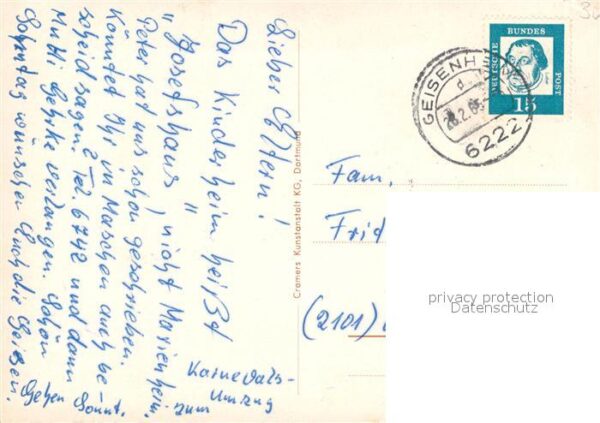 Lieber Eltern!
Das Kinderheim heißt
"Josefshaus", nicht Marienheim.
Peter hat uns schon geschrieben.
Könntet Ihr in Maschen auch be-
scheid sagen? Tel. 6742 und dann
Mutti verlangen. Schön
Sonntag wünschen Euch die
Gehen
zum
Karnevals-
Umzug
Cramers Kunstanstalt KG, Dortmund
DEUTSCHE BUNDES POST
15
GEISENH
d
6222
Fam.
Frid
(2101)
privacy protection
Datenschutz